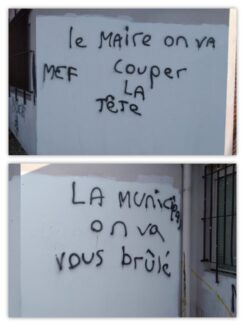 le MAiRE on vA
MEF couper
LA
TÊTE
LA MUNiCipal
on va
vous brûlé